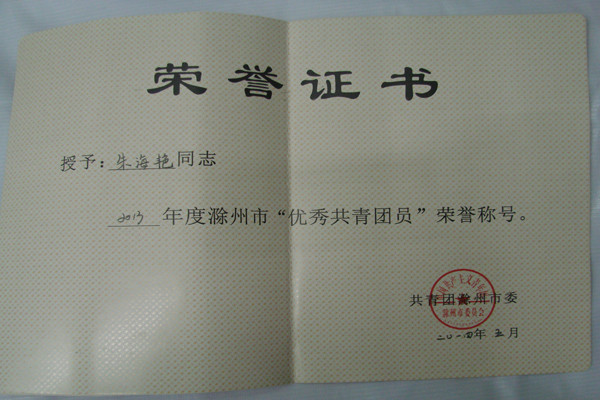 荣誉证书
授予：朱海艳同志
2013年度滁州市“优秀共青团员”荣誉称号。
共青团滁州市委
二〇一四年五月
滁州市委员会